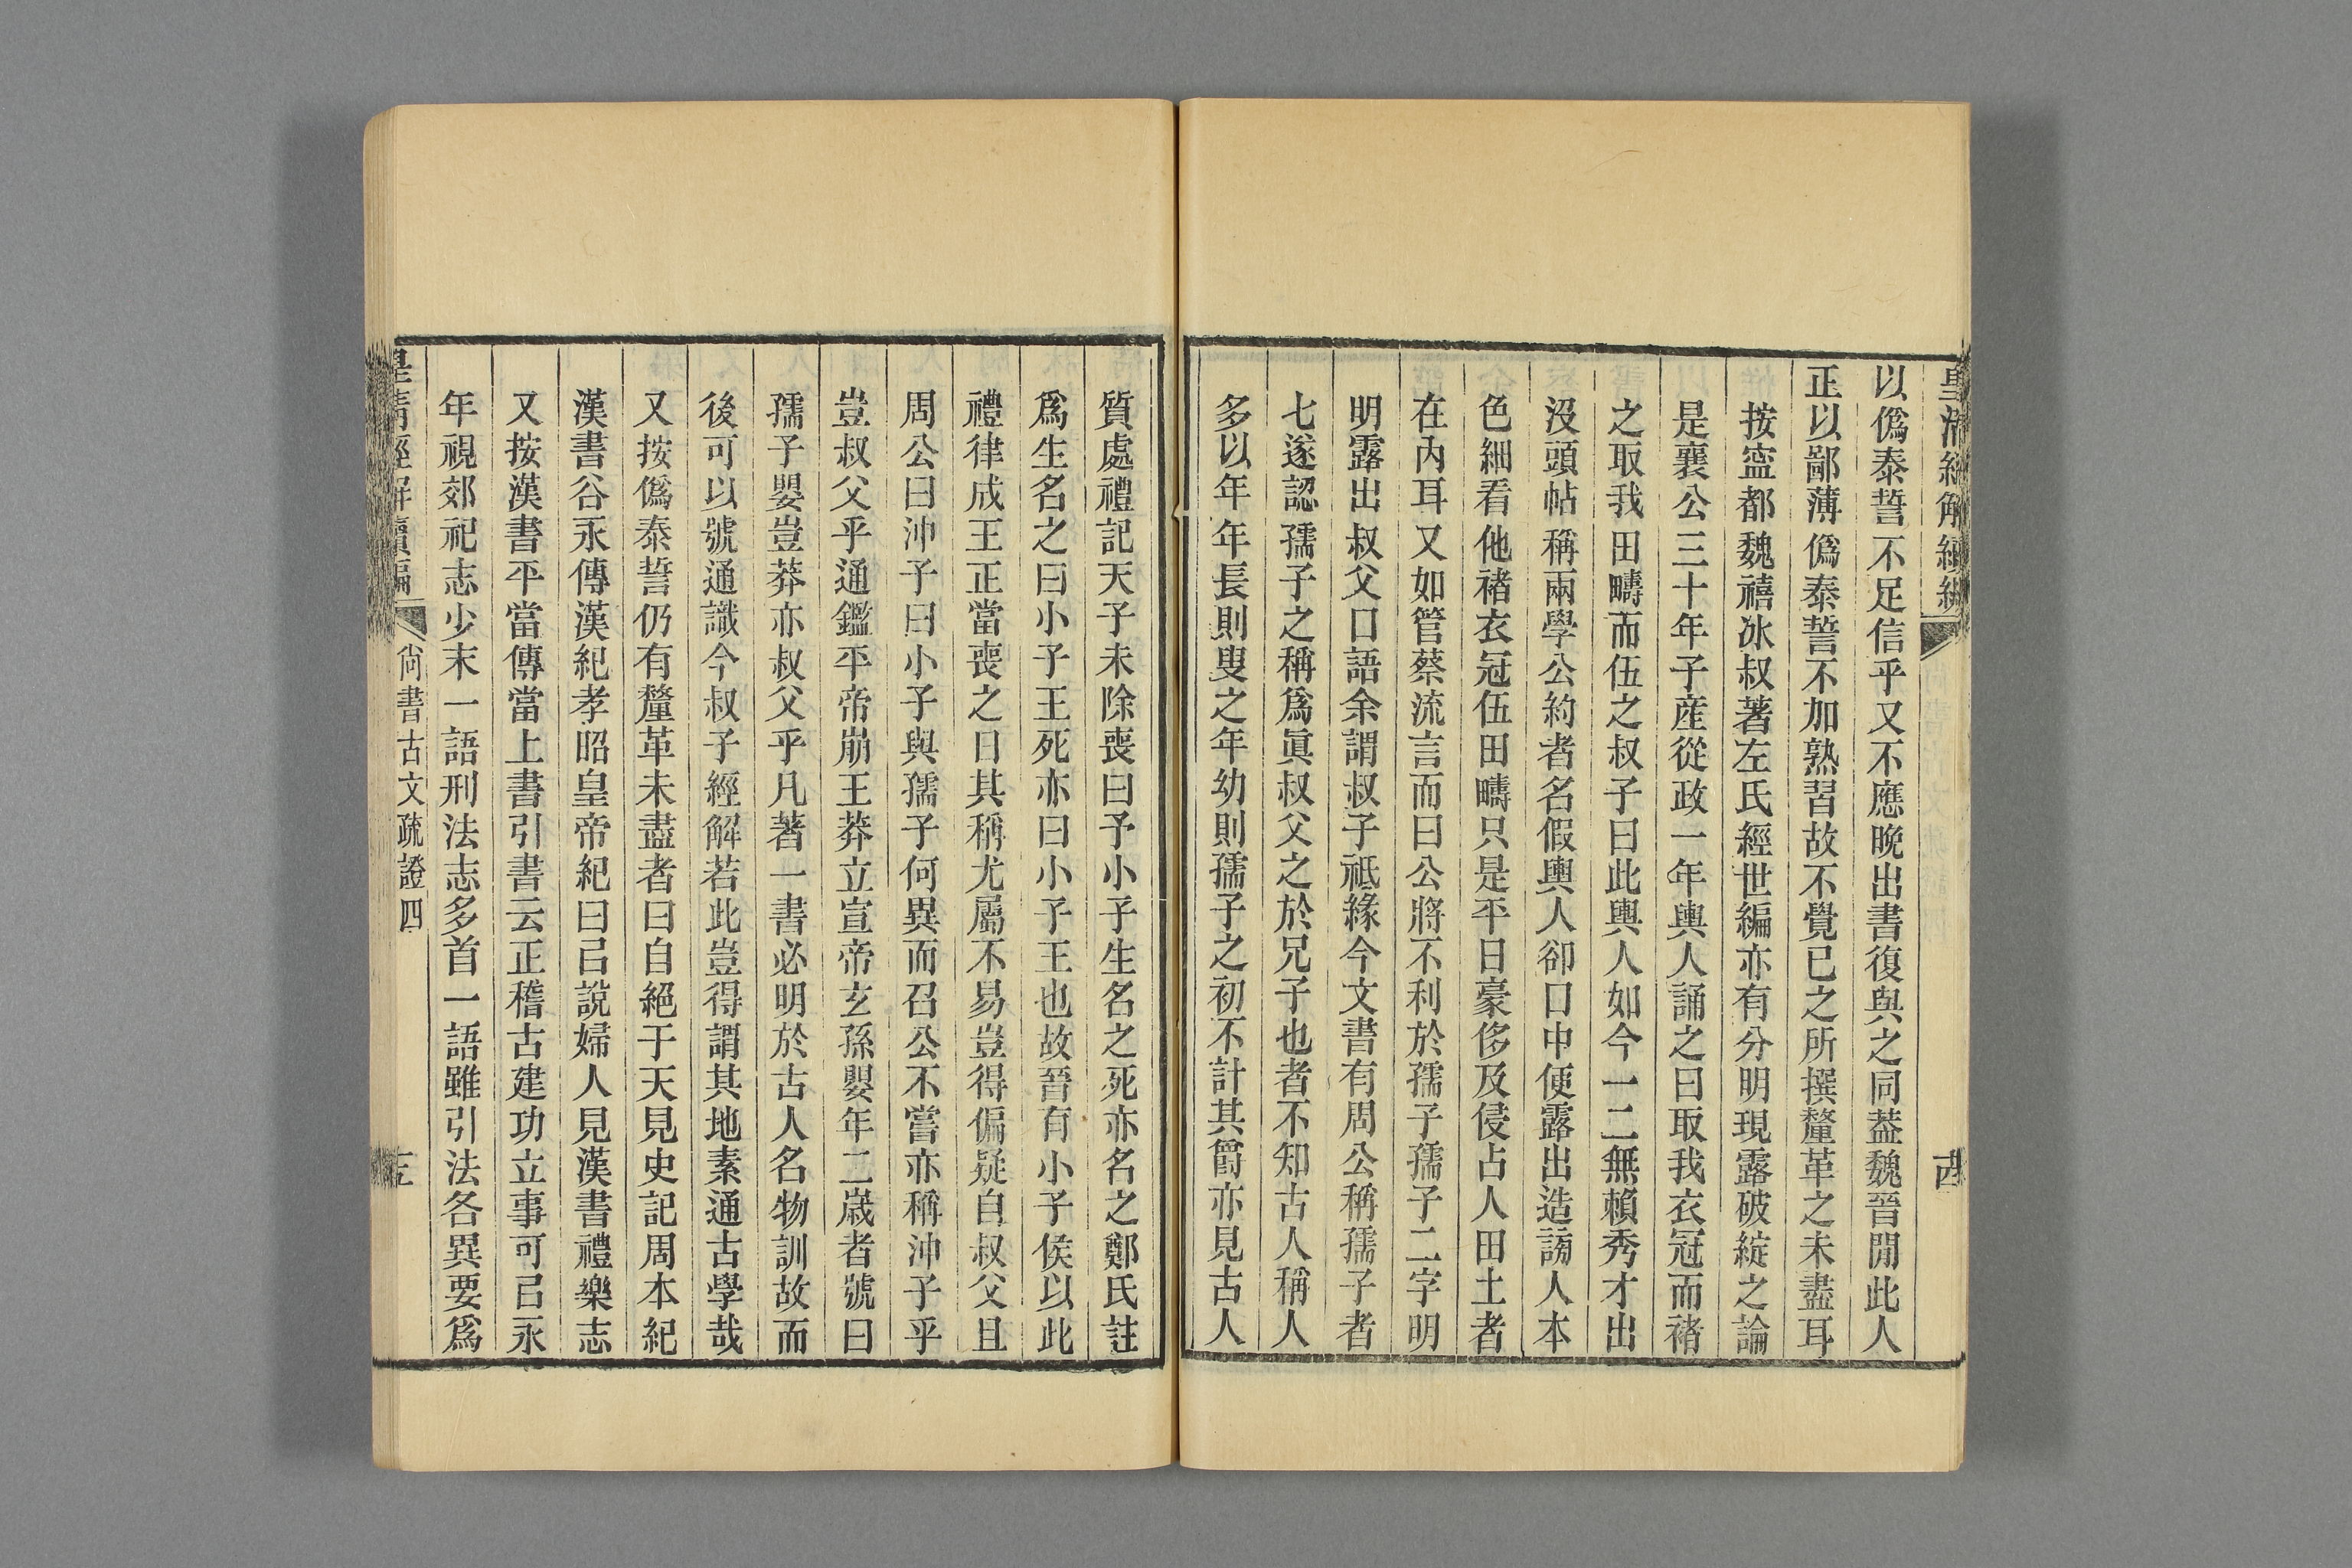 皇清經解續編
以僞泰誓不足信乎又不應晚出書復與之同蓋魏晉閒此人
正以鄙薄僞泰誓不加熟習故不覺已之所撰釐革之未盡耳
按寍都魏禧冰叔著左氏經世編亦有分明現露破綻之論
是襄公三十年子産從政一年輿人誦之曰取我衣冠而褚
之取我田疇而伍之叔子曰此輿人如今一二無賴秀才出
沒頭帖稱兩學公約者名假輿人卻口中便露出造謗人本
色細看他褚衣冠伍田疇只是平日豪侈及侵占人田土者
在內耳又如管蔡流言而曰公將不利於孺子孺子二字明
明露出叔父口語余謂叔子祗緣今文書有周公稱孺子者
七遂認孺子之稱爲眞叔父之於兄子也者不知古人稱人
多以年年長則叟之年幼則孺子之初不計其爵亦見古人
質處禮記天子未除喪曰予小子生名之死亦名之鄭氏註
爲生名之曰小子王死亦曰小子王也故晉有小子侯以此
禮律成王正當喪之日其稱尤屬不易豈得偏疑自叔父且
周公曰沖子曰小子與孺子何異而召公不嘗亦稱沖子乎
豈叔父乎通鑑平帝崩王莽立宣帝玄孫嬰年二歲者號曰
孺子嬰豈莽亦叔父乎凡著一書必明於古人名物訓故而
後可以號通識今叔子經解若此豈得謂其地素通古學哉
又按僞泰誓仍有釐革未盡者曰自絕于天見史記周本紀
漢書谷永傳漢紀孝昭皇帝紀曰㠯說婦人見漢書禮樂志
又按漢書平當傳當上書引書云正稽古建功立事可㠯永
年視郊祀志少末一語刑法志多首一語雖引法各異要爲
皇清經解續編
尚書古文疏證四